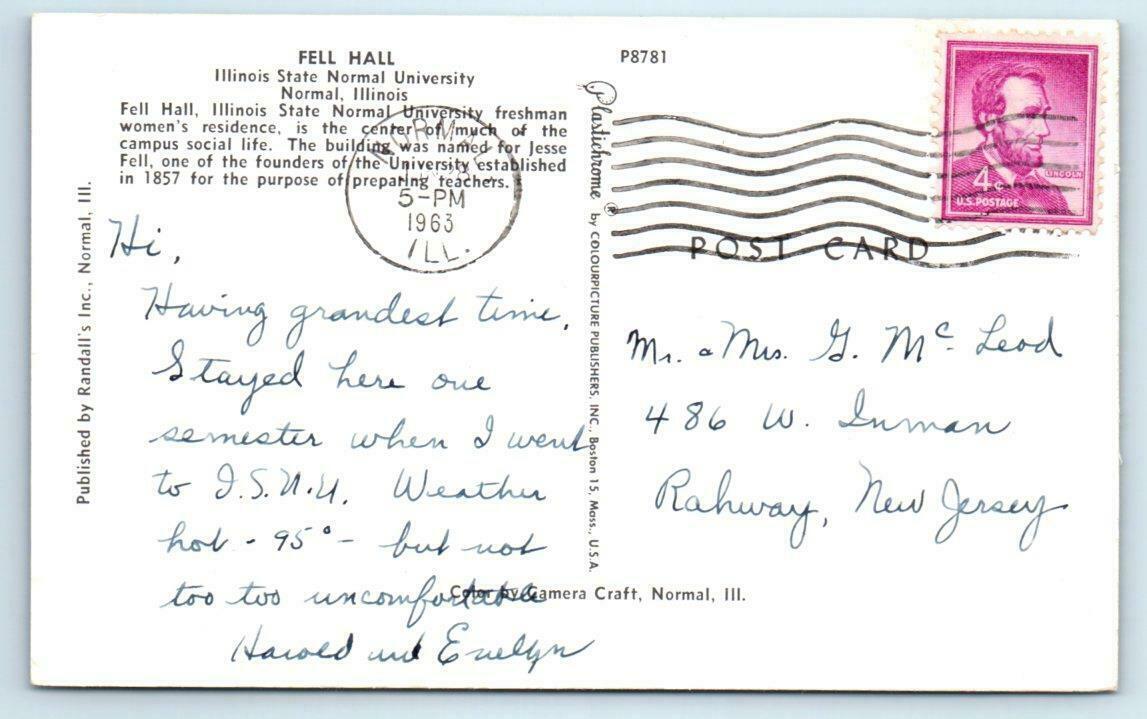 FELL HALL
Illinois State Normal University
Normal, Illinois
Fell Hall, Illinois State Normal University freshman
women's residence, is the center of much of the
campus social life. The building was named for Jesse
Fell, one of the founders of the University established
in 1857 for the purpose of preparing teachers.
P8781
NORMAL
5-PM
1963
ILL.
4¢
LINCOLN
U.S. POSTAGE
POST CARD
Published by Randall's Inc., Normal, Ill.
Plastichrome ® by COLOURPICTURE PUBLISHERS, INC., Boston 15, Mass., U.S.A.
Hi,
Having grandest time.
Stayed here one
semester when I went
to I.S.N.U. Weather
hot - 95° - but not
too too uncomfortable
Harold and Evelyn
Mr. & Mrs. G. McLeod
486 W. Inman
Rahway, New Jersey
Color by Camera Craft, Normal, Ill.